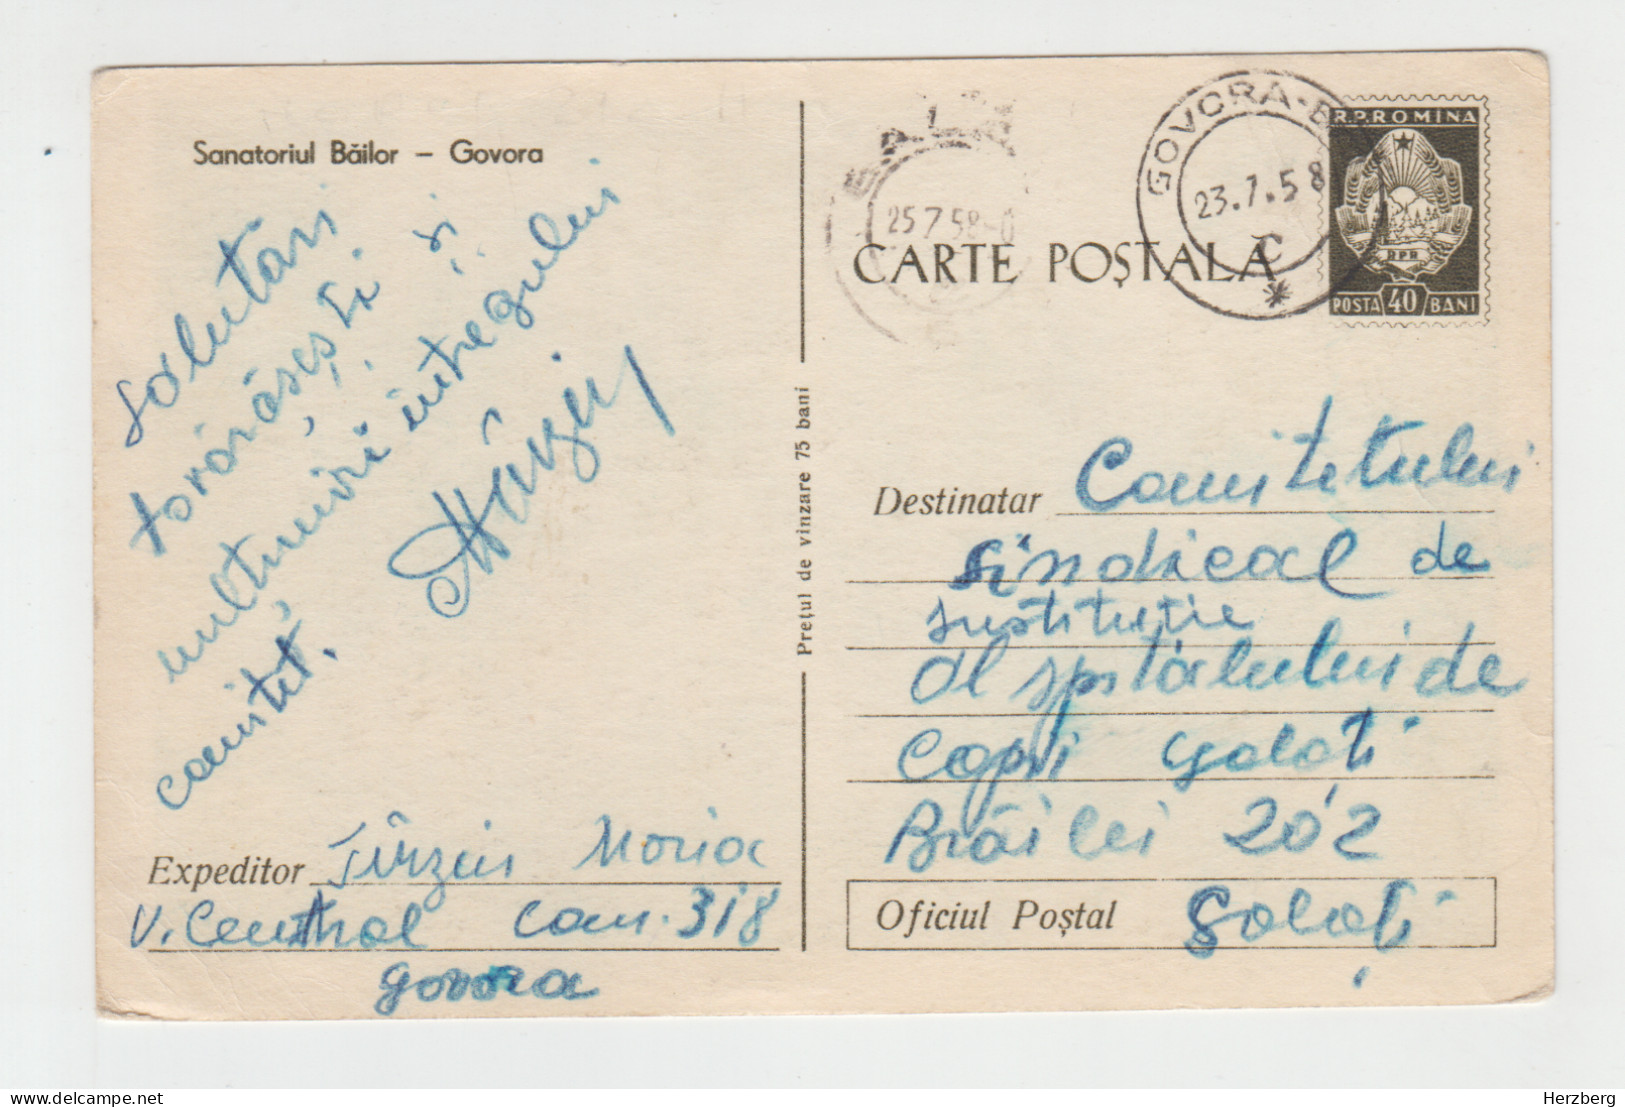 Sanatoriul Băilor – Govora
Salutări
tovărășești și
mulțumiri întregului
comitet.
Expeditor Tîrziu Maria
V. Central cam. 318
Govora
Prețul de vînzare 75 bani
25 7 58
GOVORA-B
23.7.58
C
R.P.ROMINA
RPR
POSTA 40 BANI
CARTE POȘTALĂ
Destinatar Comitetului
Sindical de
Instituție
al spitalului de
Copii Galați
Brăilei 202
Oficiul Poștal Galați
Herzberg